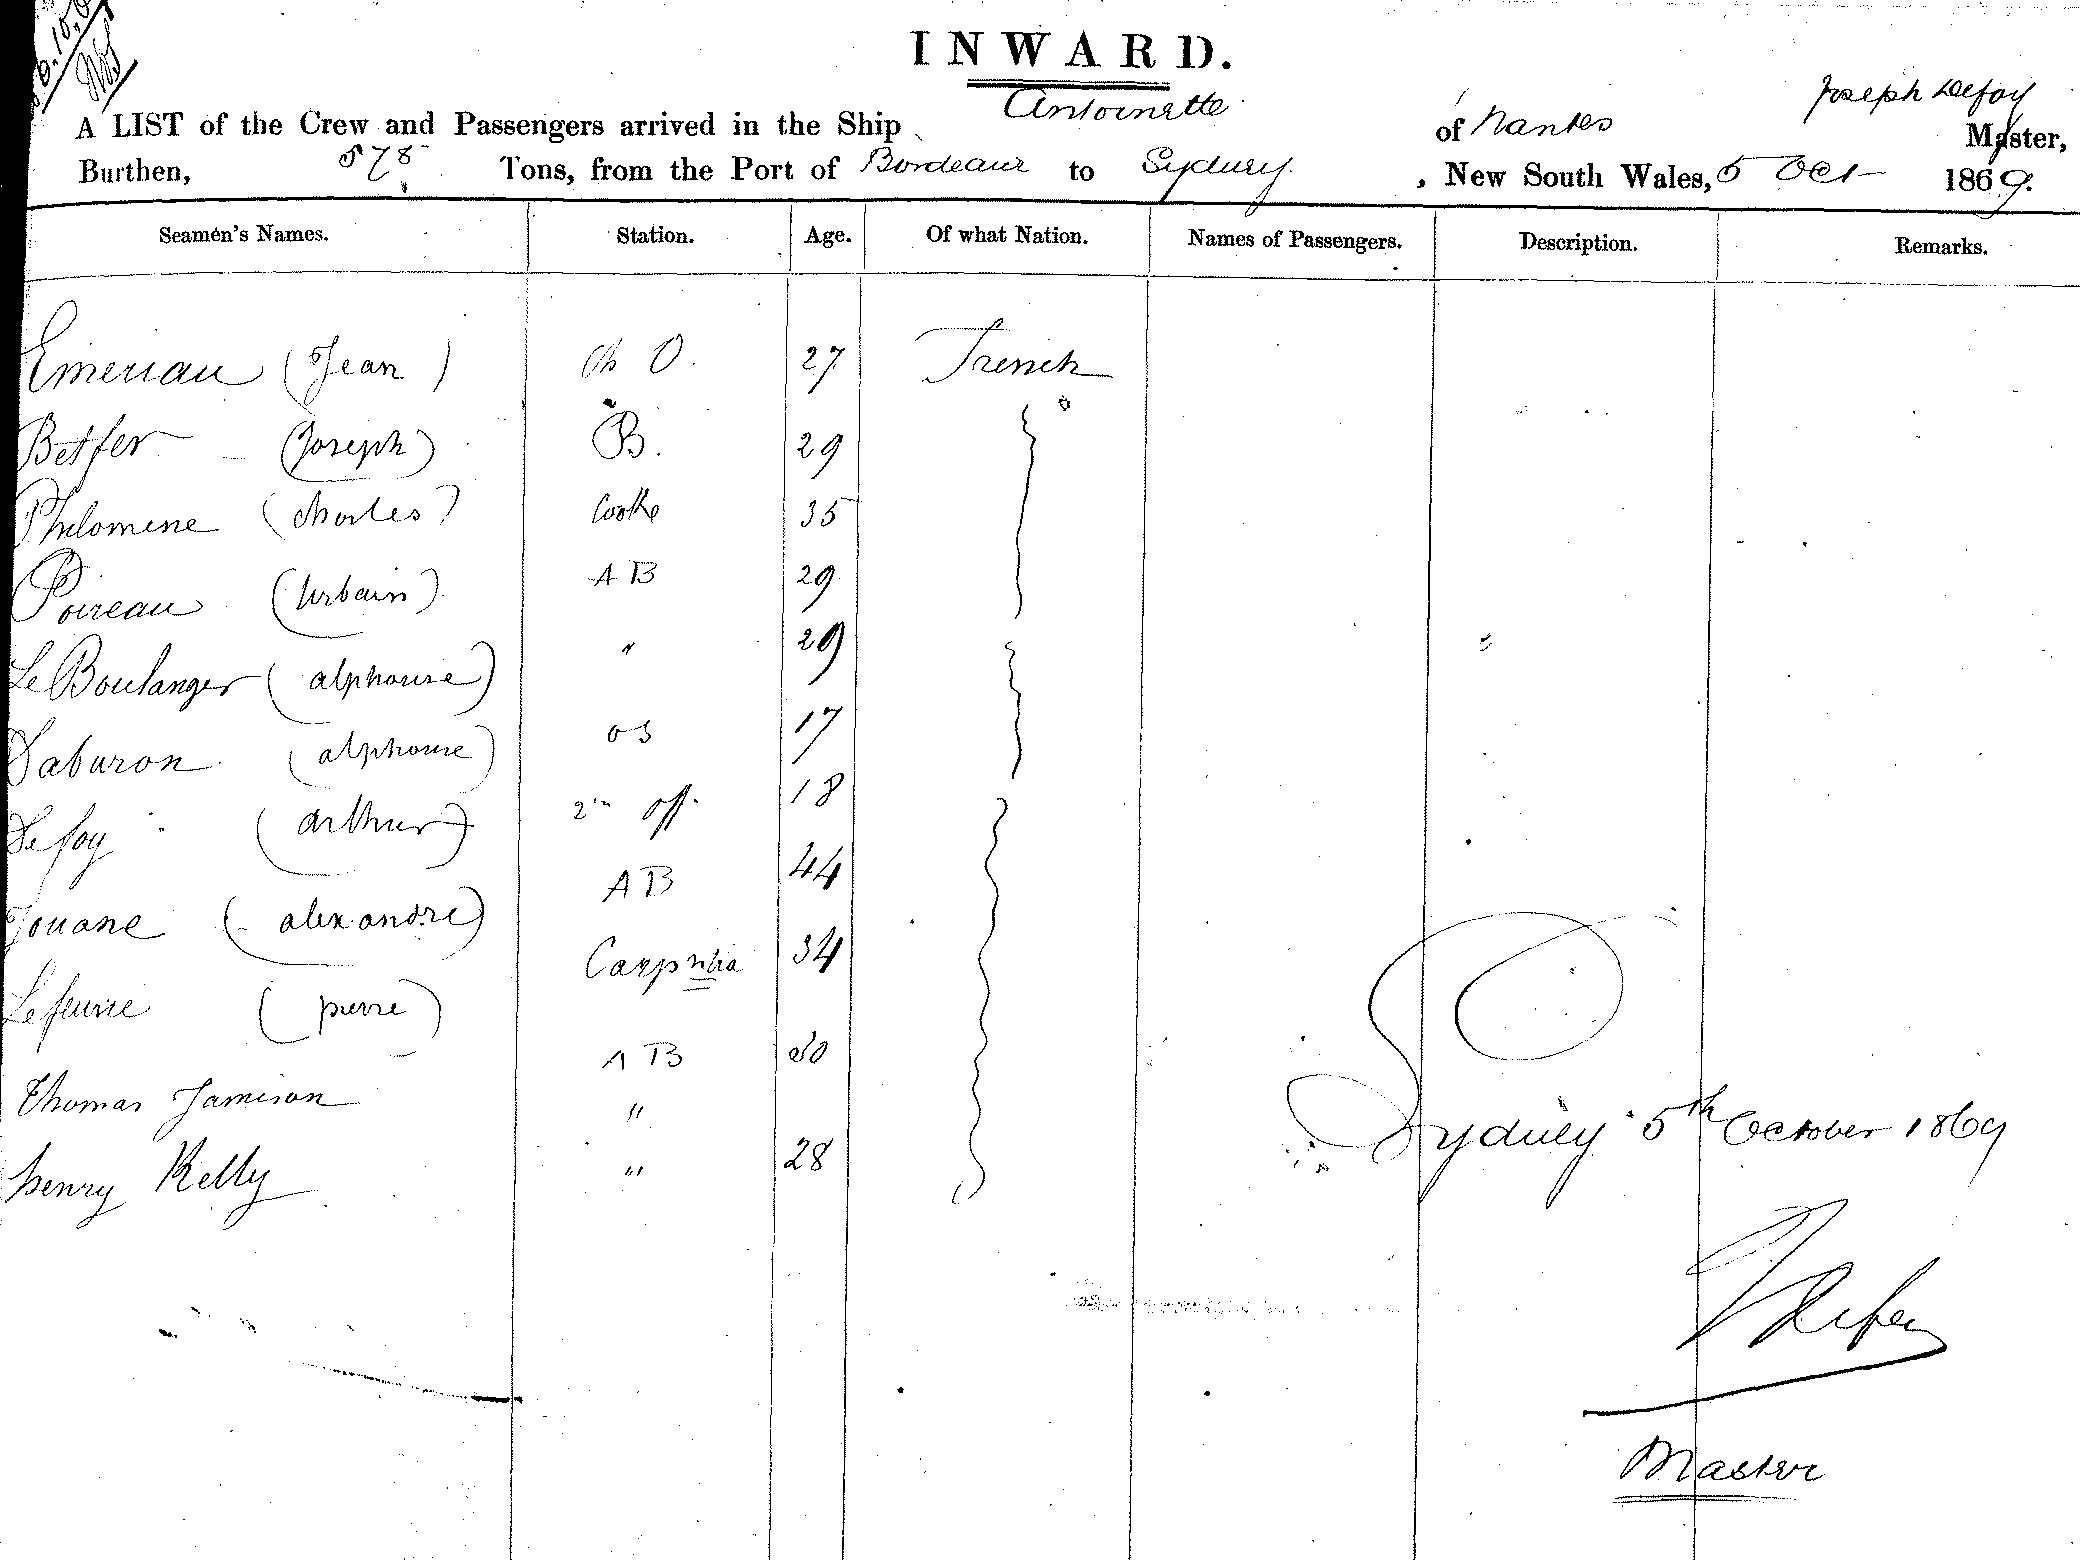 INWARD.
A LIST of the Crew and Passengers arrived in the Ship Antoinette of Nantes Joseph Defoy Master,
Burthen, 578 Tons, from the Port of Bordeaux to Sydney , New South Wales, 5 Oct 1869.
Seamen's Names. Station. Age. Of what Nation. Names of Passengers. Description. Remarks.
Emeriau (Jean) Ch O. 27 French
Betfer (Joseph) B. 29
Philomene (Charles) Cooke 35
Poireau (Urbain) AB 29
Le Boulanger (alphonse) " 29
Daburon (alphonse) OS 17
Defoy (arthur) 2nd off. 18
Jouane (alexandre) AB 44
(pierre) 34
Thomas Jamison AB
Henry Kelly " 28
"
Sydney 5th October 1869
J Defoy
Master